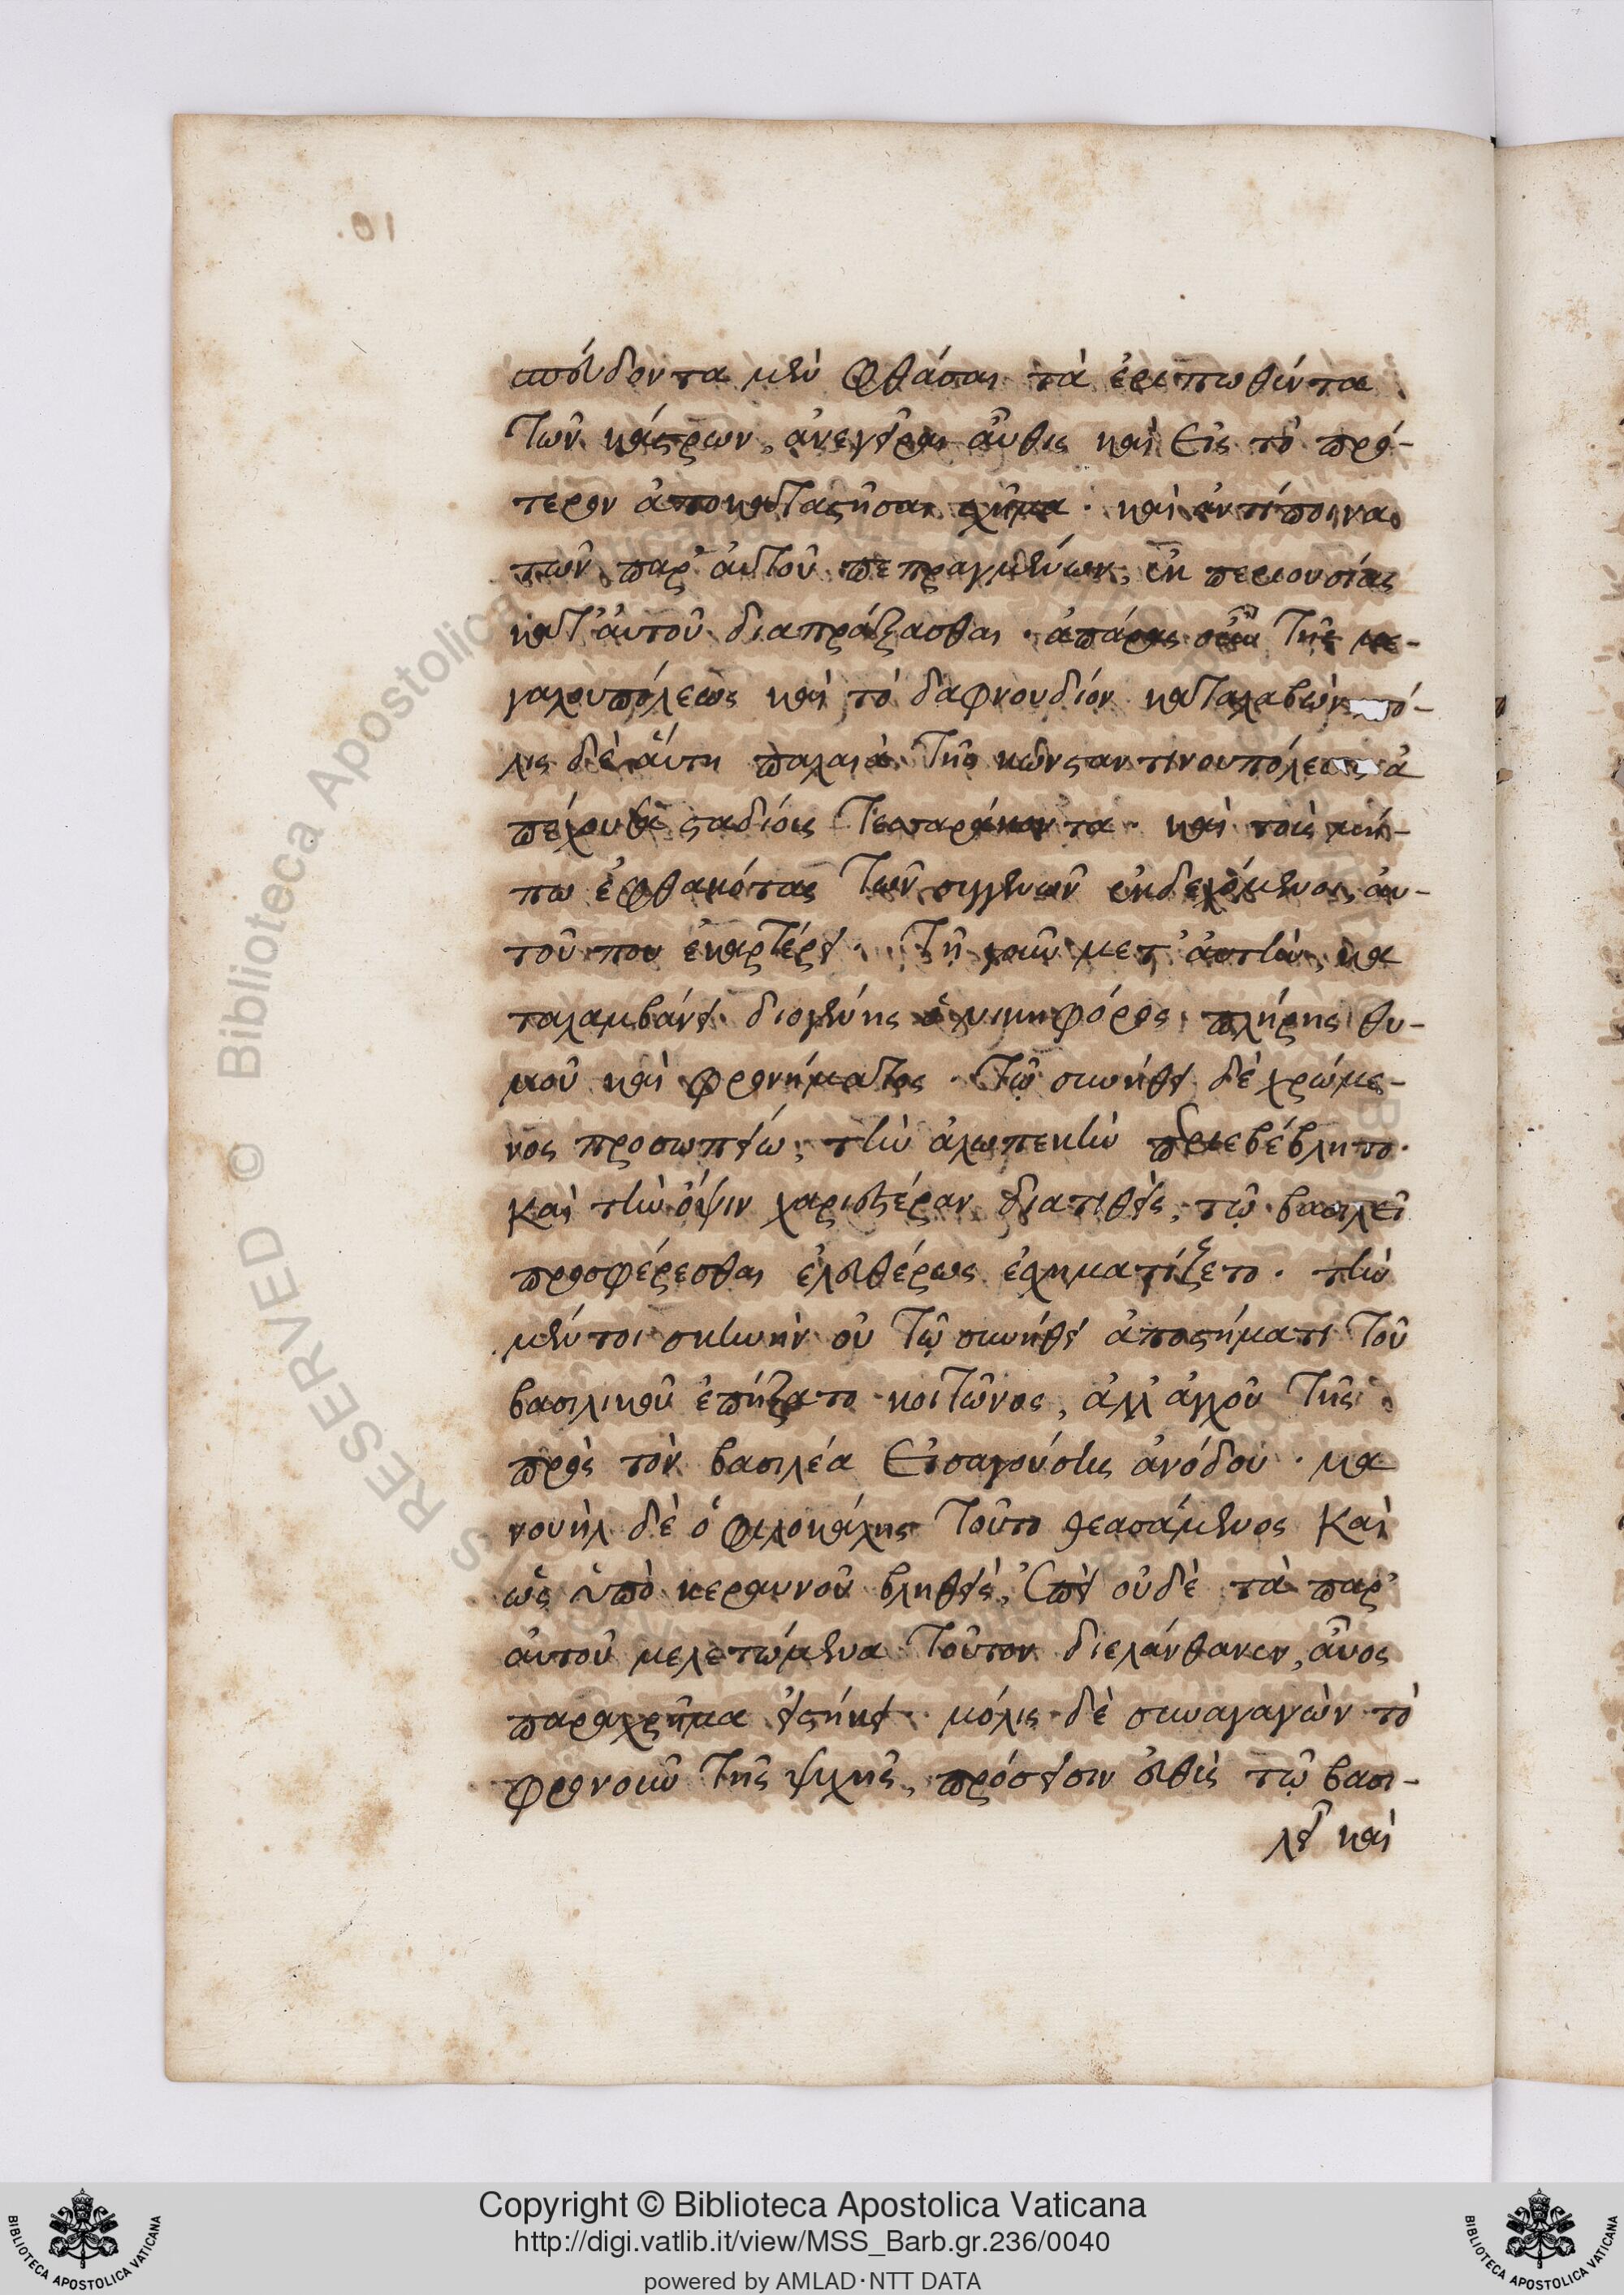 σπεύδοντα μὲν φθάσαι τὰ ἐρειπωθέντα
τῶν κάστρων, ἀνεγεῖραι αὖθις καὶ εἰς τὸ πρό-
τερον ἀποκαταστῆσαι σχῆμα· καὶ ἀντίποινα
τῶν παρ' αὐτοῦ πεπραγμένων, ἐκ περιουσίας
κατ' αὐτοῦ διαπράξασθαι· ἀπάρας οὖν τῆς με-
γαλουπόλεως καὶ τὸ δαφνουδίον καταλαβὼν πό-
λις δὲ αὕτη παλαιὰ τῆς κωνσταντινουπόλεως ἀ
πέχουσα σταδίοις τεσσαράκοντα· καὶ τοὺς μή-
πω ἐφθακότας τῶν συγγενῶν ἐκδεχόμενος, αὐ-
τοῦ που ἐκαρτέρει· τῇ γοῦν μετ' αὐτὴν, κα
ταλαμβάνει διογένης ὁ νικηφόρος πλήρης θυ-
μοῦ καὶ φρονήματος· τῷ συνήθει δὲ χρώμε-
νος προσωπείω, τὴν ἀλωπεκὴν περιεβέβλητο·
καὶ τὴν ὄψιν χαριεστέραν διατιθεὶς, τῷ βασιλεῖ
προσφέρεσθαι ἐλευθέρως ἐσχηματίζετο· τὴν
μέντοι σκηνὴν οὐ τῷ συνήθει ἀποστήματι τοῦ
βασιλικοῦ ἐπήξατο κοιτῶνος, ἀλλ' ἀγχοῦ τῆς
πρὸς τὸν βασιλέα εἰσαγούσης ἀνόδου· μα
νουὴλ δὲ ὁ φιλοκάλης τοῦτο θεασάμενος καὶ
ὡς ὑπὸ κεραυνοῦ βληθεὶς, ἐπεὶ οὐδὲ τὰ παρ'
αὐτοῦ μελετώμενα τοῦτον διελάνθανεν, αὖος
παραχρῆμα εἰστήκει· μόλις δὲ συναγαγὼν τὸ
φρονοῦν τῆς ψυχῆς, πρόσεισιν εὐθὺς τῷ βασι-
λεῖ καὶ
Copyright © Biblioteca Apostolica Vaticana
http://digi.vatlib.it/view/MSS_Barb.gr.236/0040
powered by AMLAD·NTT DATA